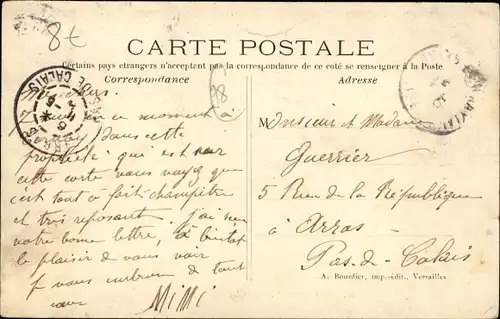 8t
CARTE POSTALE
Certains pays etrangers n'acceptent pas la correspondance de ce coté se renseigner à la Poste
Correspondance
Adresse
28
en ce moment à
dans cette
propriété qui est sur
cette carte vous voyez que
c'est tout à fait champêtre
et très reposant. j'ai
votre bonne lettre, à bientot
le plaisir de vous voir
je vous embrasse de tout
cœur
MiMi
Monsieur et Madame
Guerrier
5 Rue de la République
à Arras
Pas-de-Calais
A. Bourdier, imp.-édit., Versailles